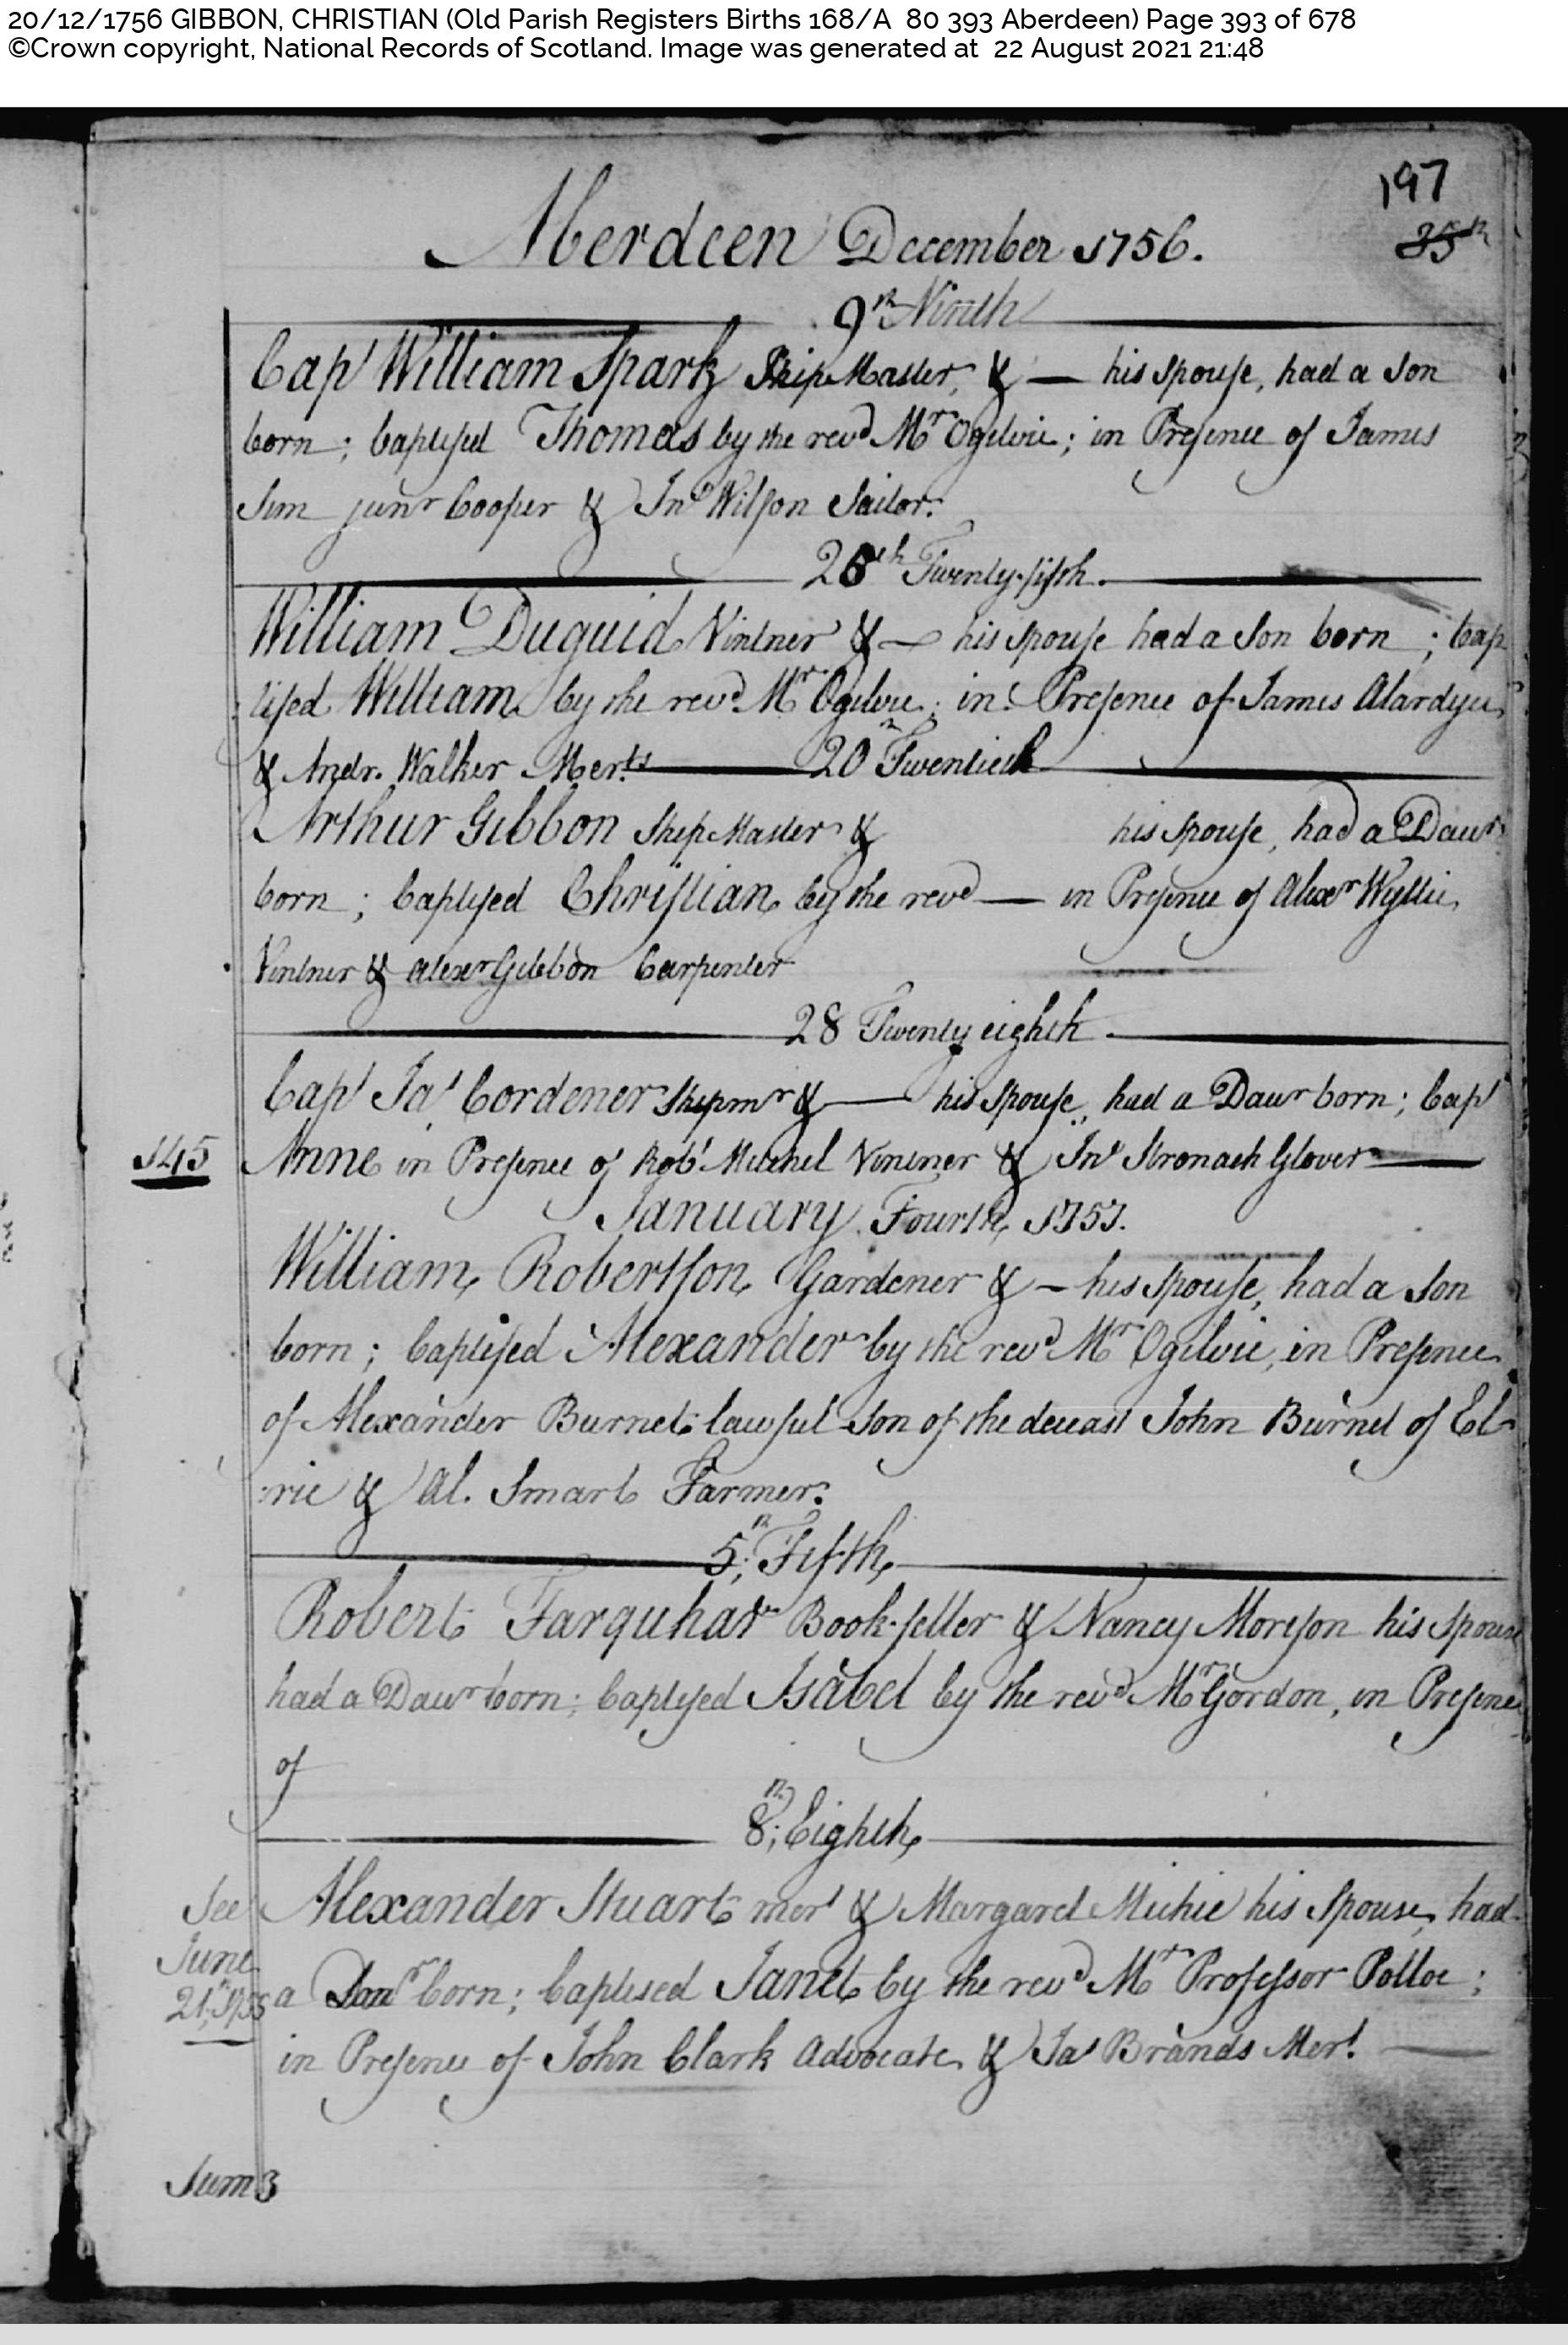 20/12/1756 GIBBON, CHRISTIAN (Old Parish Registers Births 168/A 80 393 Aberdeen) Page 393 of 678
©Crown copyright, National Records of Scotland. Image was generated at 22 August 2021 21:48
197
Aberdeen December 1756.
35th
9th Ninth
Capt William Spark Ship Master, & — his Spouse, had a Son
born; baptised Thomas by the revd Mr Ogilvie; in Presence of James
Sim junr Cooper & Jno Wilson Sailor.
Twenty-fifth.
William Duguid Vintner & — his spouse had a Son born; bap
tised William by the revd Mr Ogilvie; in Presence of James Alardyce
& Andr. Walker Merts 20th Twentieth
Arthur Gibbon Ship Master & his spouse, had a Daur
born; baptised Christian by the revd — in Presence of Alexr Wyllie
Vintner & Alexr Gibbon Carpenter
28 Twenty eighth
Capt Jas Cordener Shipmr & — his Spouse, had a Daur born; bapt
145 Anne in Presence of Robt Vintner & Jno Stronach Glover
January Fourth 1757.
William Robertson Gardener & — his Spouse, had a Son
born; baptised Alexander by the revd Mr Ogilvie, in Presence
of Alexander Burnet lawful Son of the deceast John Burnet of El-
:ric & Al. Smart Farmer.
5th; Fifth
Robert Farquhar Book-seller & Nancy Morison his Spouse
had a Daur born; baptised Isabel by the revd Mr Gordon, in Presence
of
8th; Eighth
See Alexander Stuart mert & Margaret Michie his Spouse, had
June
21, a Daur born; baptised Janet by the revd Mr Professor Polloc;
in Presence of John Clark Advocate & Jas Brands Mert.
Sum 3